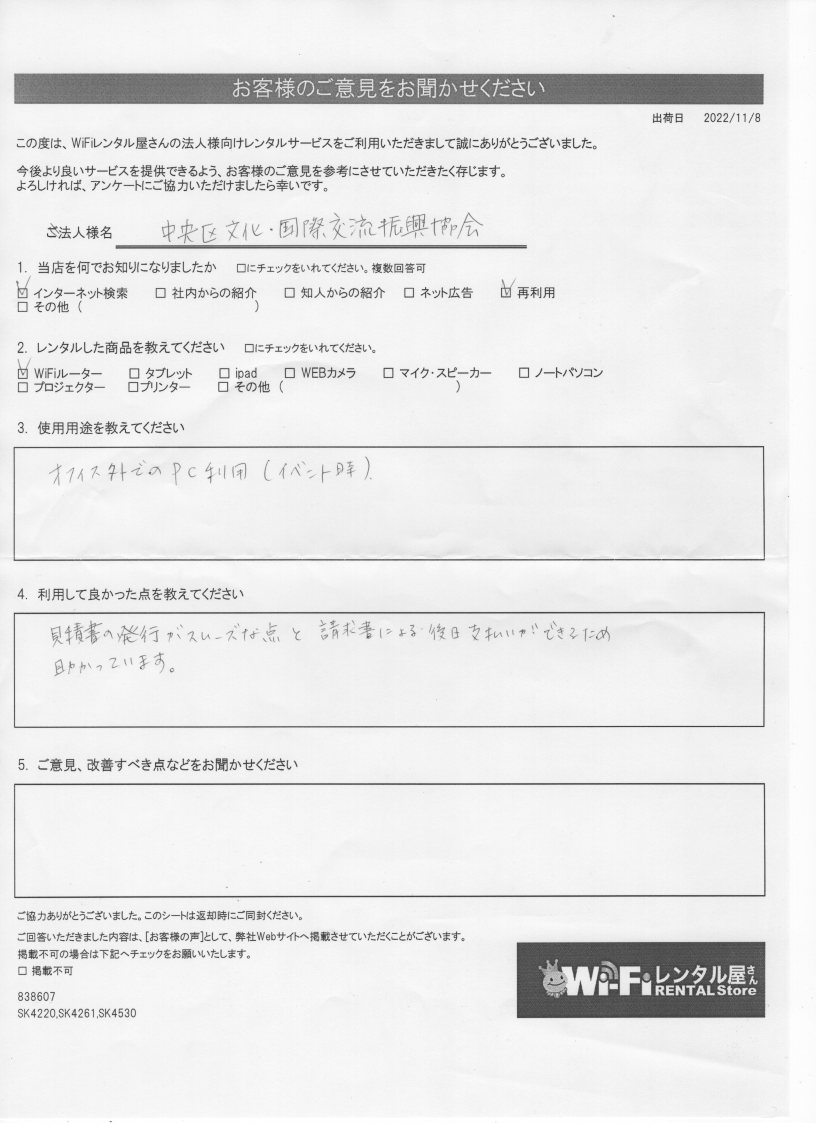 お客様のご意見をお聞かせください
出荷日 2022/11/8
この度は、WiFiレンタル屋さんの法人様向けレンタルサービスをご利用いただきまして誠にありがとうございました。
今後より良いサービスを提供できるよう、お客様のご意見を参考にさせていただきたく存じます。
よろしければ、アンケートにご協力いただけましたら幸いです。
ご法人様名 中央区文化・国際交流振興協会
1. 当店を何でお知りになりましたか □にチェックをいれてください。複数回答可
☑ インターネット検索 □ 社内からの紹介 □ 知人からの紹介 □ ネット広告 ☑ 再利用
□ その他 ( )
2. レンタルした商品を教えてください □にチェックをいれてください。
☑ WiFiルーター □ タブレット □ ipad □ WEBカメラ □ マイク・スピーカー □ ノートパソコン
□ プロジェクター □プリンター □ その他 ( )
3. 使用用途を教えてください
オフィス外でのPC利用(イベント時).
4. 利用して良かった点を教えてください
見積書の発行がスムーズな点と請求書による後日支払いができるため
助かっています。
5. ご意見、改善すべき点などをお聞かせください
ご協力ありがとうございました。このシートは返却時にご同封ください。
ご回答いただきました内容は、[お客様の声]として、弊社Webサイトへ掲載させていただくことがございます。
掲載不可の場合は下記へチェックをお願いいたします。
□ 掲載不可
838607
SK4220,SK4261,SK4530
Wi-Fiレンタル屋さん
RENTAL Store